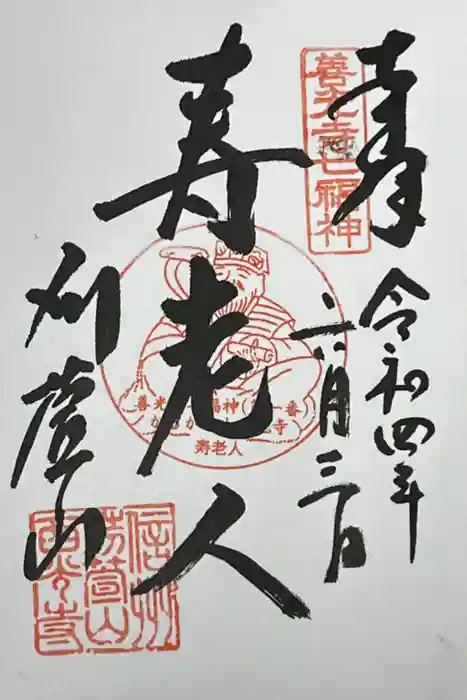 奉拝
善光寺七福神
令和四年
六月三日
寿老人
善光 福神( 一番)
寿老人
刈萱山
信州
苅萱山
西光寺